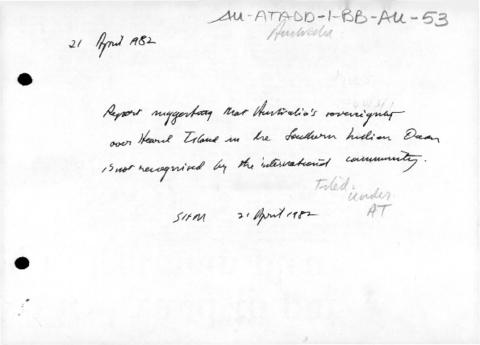 AU-ATADD-1-BB-AU-53
Australia
21 April 1982
Report suggesting that Australia's sovereignty
over Heard Island in the Southern Indian Ocean
is not recognised by the international community.
Filed
under
AT
SMH 21 April 1982